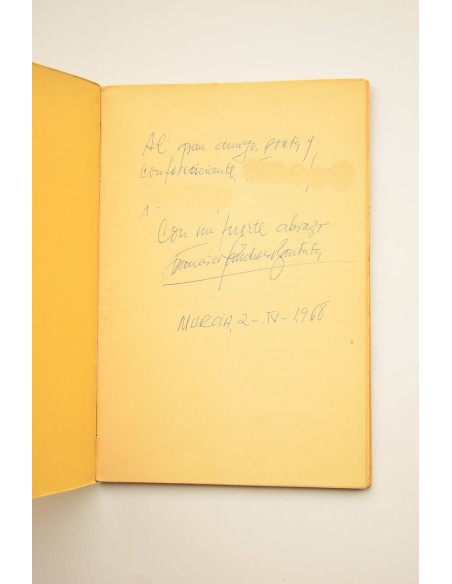 Al gran amigo, poeta y
conferenciante,
Con mi fuerte abrazo
Francisco Sánchez Bautista
MURCIA, 2 - IV - 1,968